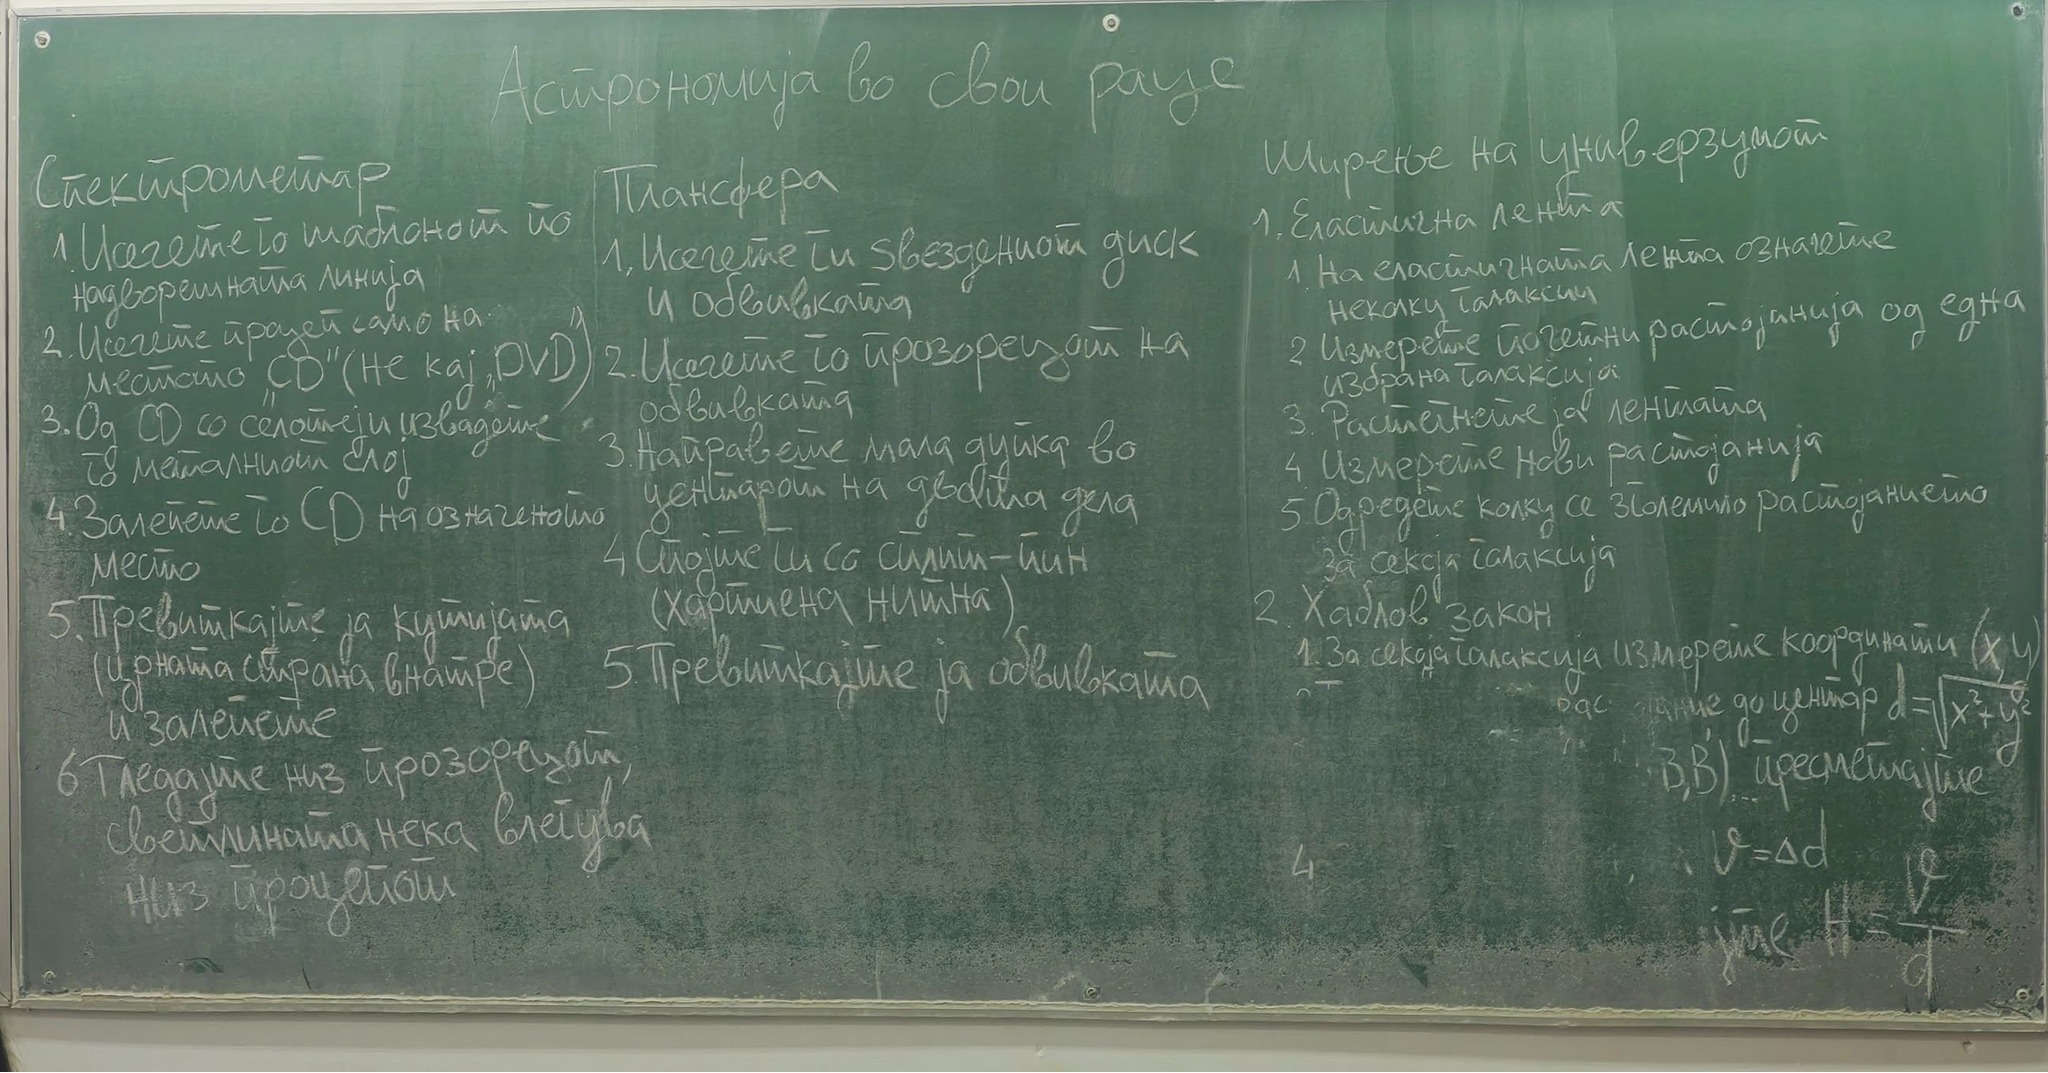 Астрономија во свои раце
Спектрометар
1. Исечете го шаблонот по
надворешната линија
2. Исечете процеп само на
местото „CD" (не кај „DVD")
3. Од CD со селотејп извадете
го металниот слој
4. Залепете го CD на означеното
место
5. Превиткајте ја кутијата
(црната страна внатре)
и залепете
6 Гледајте низ прозорецот,
светлината нека влегува
низ процепот
Плансфера
1. Исечете ги ѕвездениот диск
и обвивката
2. Исечете го прозорецот на
обвивката
3. Направете мала дупка во
центарот на двата дела
4 Спојте ги со сплит-пин
(хартиена нитна)
5. Превиткајте ја обвивката
Ширење на универзумот
1. Еластична лента
1. На еластичната лента означете
неколку галаксии
2 Измерете почетни растојанија од една
избрана галаксија
3. Растегнете ја лентата
4 Измерете нови растојанија
5. Одредете колку се зголемило растојанието
за секоја галаксија
2. Хаблов закон
1. За секоја галаксија измерете координати (x,y)
до центар d=√x²+y²
B,B) ... пресметајте
4 v=Δd
јте H = v/d